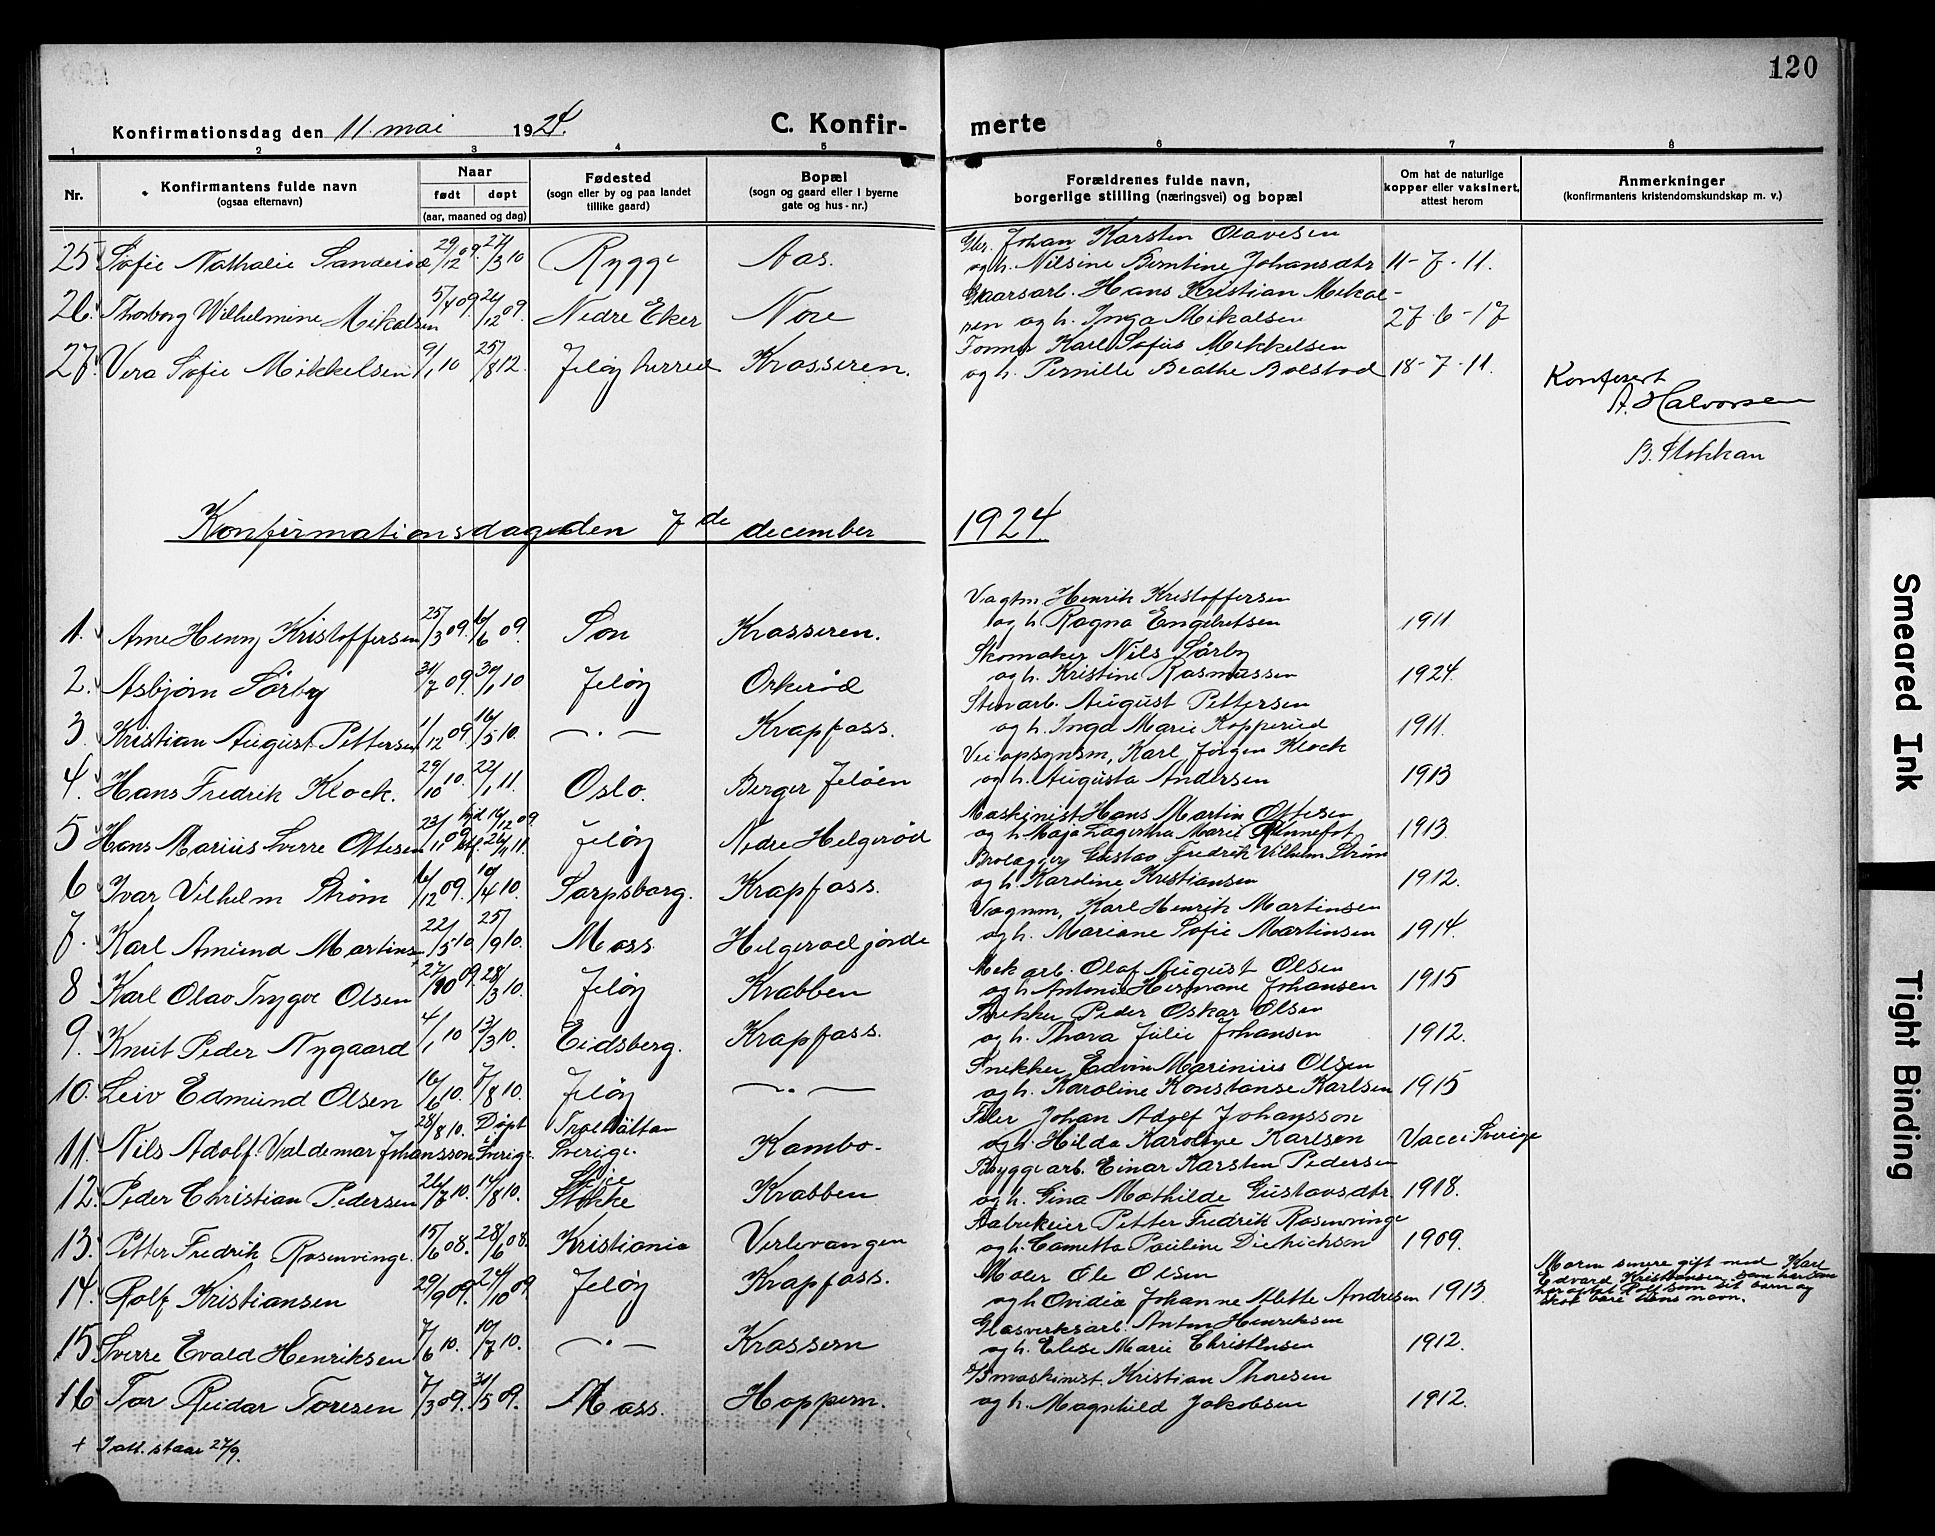 120
Konfirmationsdag den 11. mai 1924. C. Konfir- merte
1 2 3 4 5 6 7 8
Nr. Konfirmantens fulde navn (ogsaa efternavn) Naar født døpt (aar, maaned og dag) Fødested (sogn eller by og paa landet tillike gaard) Bopæl (sogn og gaard eller i byerne gate og hus-nr.) Forældrenes fulde navn, borgerlige stilling (næringsvei) og bopæl Om hat de naturlige kopper eller vaksinert, attest herom Anmerkninger (konfirmantens kristendomskundskap m. v.)
25. Sofie Nathalie Sanderød 29/12 09. 27/3 10 Rygge Aas. Gbr. Johan Karsten Olavesen
og h. Nilsine Berntine Johansdtr 11-7-11.
26. Thorborg Wilhelmine Mikalsen 5/4 09. 26/12 09. Nedre Eker Nore Gaarsarb. Hans Kristian Mikal-
sen og h. Inga Mikalsen 27-6-17
27. Vera Sofie Mikkelsen 9/1 10 25/8 12. Jeløy herred Krosseren. Former Karl Sofus Mikkelsen
og h. Pernille Beathe Bolstad 18-7-11.
Konferert
A. Halvorsen
B. Stokkan
Konfirmationsdag den 7de december 1924.
1. Arne Henry Kristoffersen 25/3 09. 6/6 09. Son Krosseren. Vagtm. Henrik Kristoffersen
og h. Ragna Engebretsen 1911
2. Asbjørn Sørby 31/7 09. 30/1 10 Jeløy Orkerød Skomaker Nils Sørby
og h. Kristine Rasmussen 1924.
3. Kristian August Pettersen 1/12 09. 16/5 10. —·— Krapfoss. Stenarb. August Pettersen
og h. Inga Marie Kopperud 1911.
4. Hans Fredrik Klock. 29/10 10. 22/1 11. Oslo. Berger Jeløen Vei opsynsm, Karl Jørgen Klock
og h. Augusta Andersen 1913
5 Hans Marius Sverre Ottesen 23/11 09 hjd 19/12 09. 26/11 11. Jeløy Nedre Helgerød Maskinist Hans Martin Ottesen
og h. Maja Lagertha Marie Rennefot 1913.
6 Ivar Vilhelm Strøm 6/12 09. 10/4 10. Sarpsborg. Krapfoss. Brolægger Gustav Fredrik Vilhelm Strøm
og h. Karoline Kristiansen 1912.
7. Karl Amund Martinsen 22/5 10 25/9 10. Moss. Helgerødjorde Vognm, Karl Henrik Martinsen
og h. Mariane Sofie Martinsen 1914.
8 Karl Olav Trygve Olsen 27/10 09. 28/3 10. Jeløy Krabben Mek arb. Olaf August Olsen
og h. Antonie Hermane Johansen 1915
9. Knut Peder Nygaard 4/1 10 13/3 10. Eidsberg. Krapfoss. Snekker Peder Oskar Olsen
og h. Thora Julie Johansen 1912.
10. Leiv Edmund Olsen 16/6 10. 7/8 10. Jeløy —·— Snekker Edvin Marinius Olsen
og h. Karoline Konstanse Karlsen 1915
11. Nils Adolf Valdemar Johansson 28/8 10. Døpt i Sverige Trollhättan Sverige. Kambo. Filer Johan Adolf Johansson
og h. Hilda Karoline Karlsen Vacc i Sverige
12. Peder Christian Pedersen 26/7 10. 14/8 10. Stokke Krabben Bryggearb. Einar Karsten Pedersen
og h. Gina Mathilde Gustavsdtr. 1918.
13. Petter Fredrik Rosenvinge. 15/6 08. 28/6 08. Kristiania Verlevangen Fabrikeier Petter Fredrik Rosenvinge
og h. Cometta Pauline Dietrichson 1909.
14. Rolf Kristiansen 29/9 09. 24/10 09. Jeløy Krapfoss. Maler Ole Olsen
og h Ovidia Johanne Alette Andresen 1913. Moren senere gift med Karl
Edvard Kristiansen, som
har antat Rolf som sit barn og
skal bære hans navn.
15 Sverre Evald Henriksen 7/6 10. 10/7 10. —·— Krossern Glasverksarb. Anton Henriksen
og h. Elise Marie Christensen 1912.
16 Tor Reidar Toresen 7/3 09. 31/5 09. Moss. Hoppern. D/S maskinist. Kristian Thoresen
og h. Magnhild Jakobsen 1912.
+ I att. staar 27/9.
Smeared Ink
Tight Binding